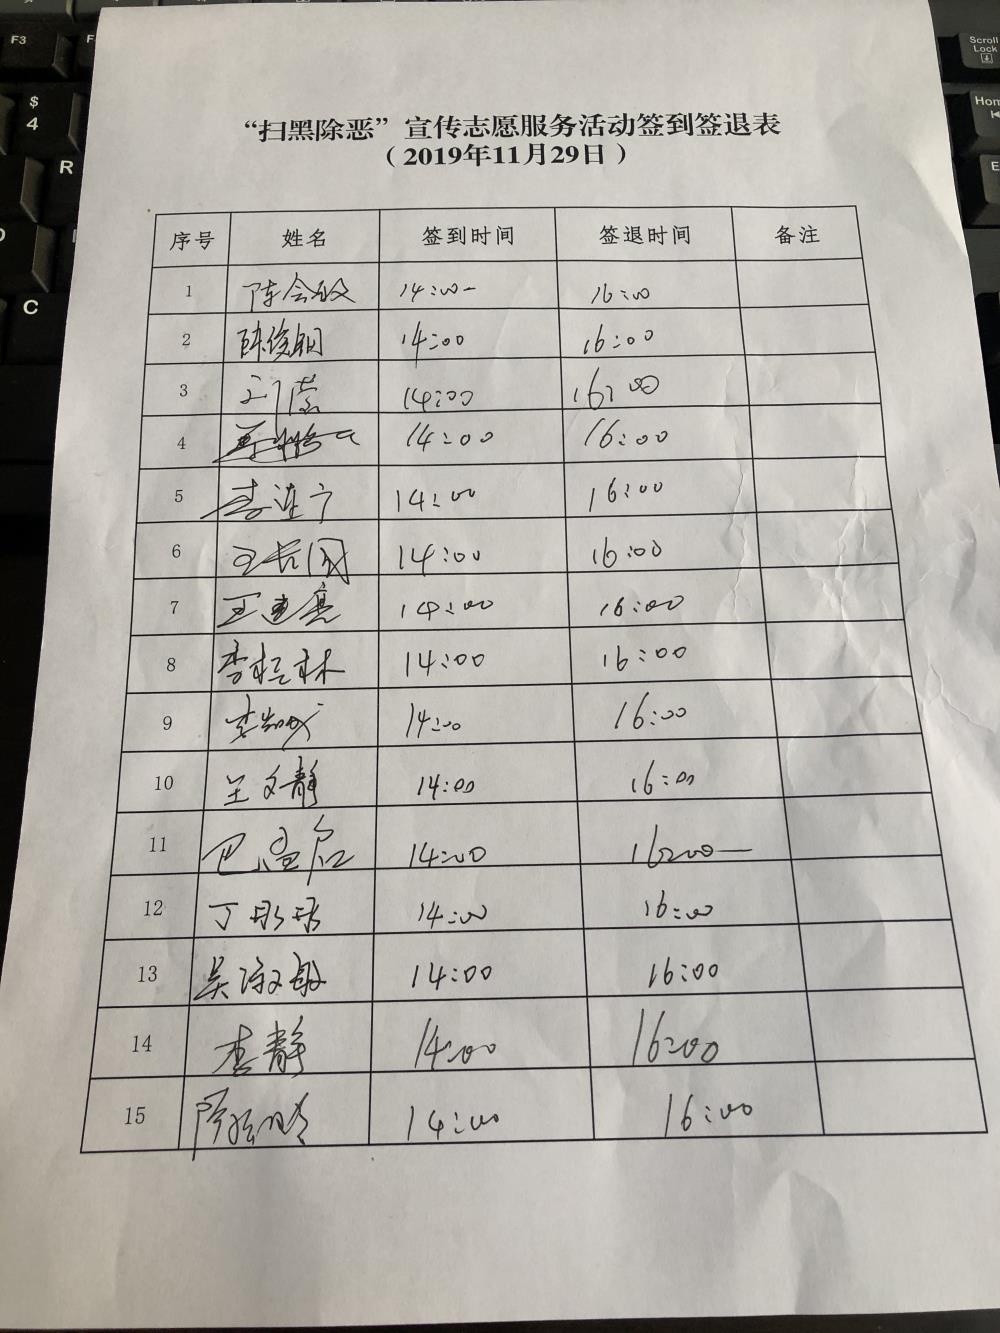 “扫黑除恶”宣传志愿服务活动签到签退表
（2019年11月29日）
序号 姓名 签到时间 签退时间 备注
1 陈会敏 14:00 16:00
2 陈俊钢 14:00 16:00
3 14:00 16:00
4 14:00 16:00
5 李连宁 14:00 16:00
6 王长国 14:00 16:00
7 王建亮 14:00 16:00
8 李柱林 14:00 16:00
9 14:00 16:00
10 王文静 14:00 16:00
11 14:00 16:00
12 14:00 16:00
13 吴淑敏 14:00 16:00
14 李静 14:00 16:00
15 14:00 16:00
F3
$
4
R
C
Scroll
Lock